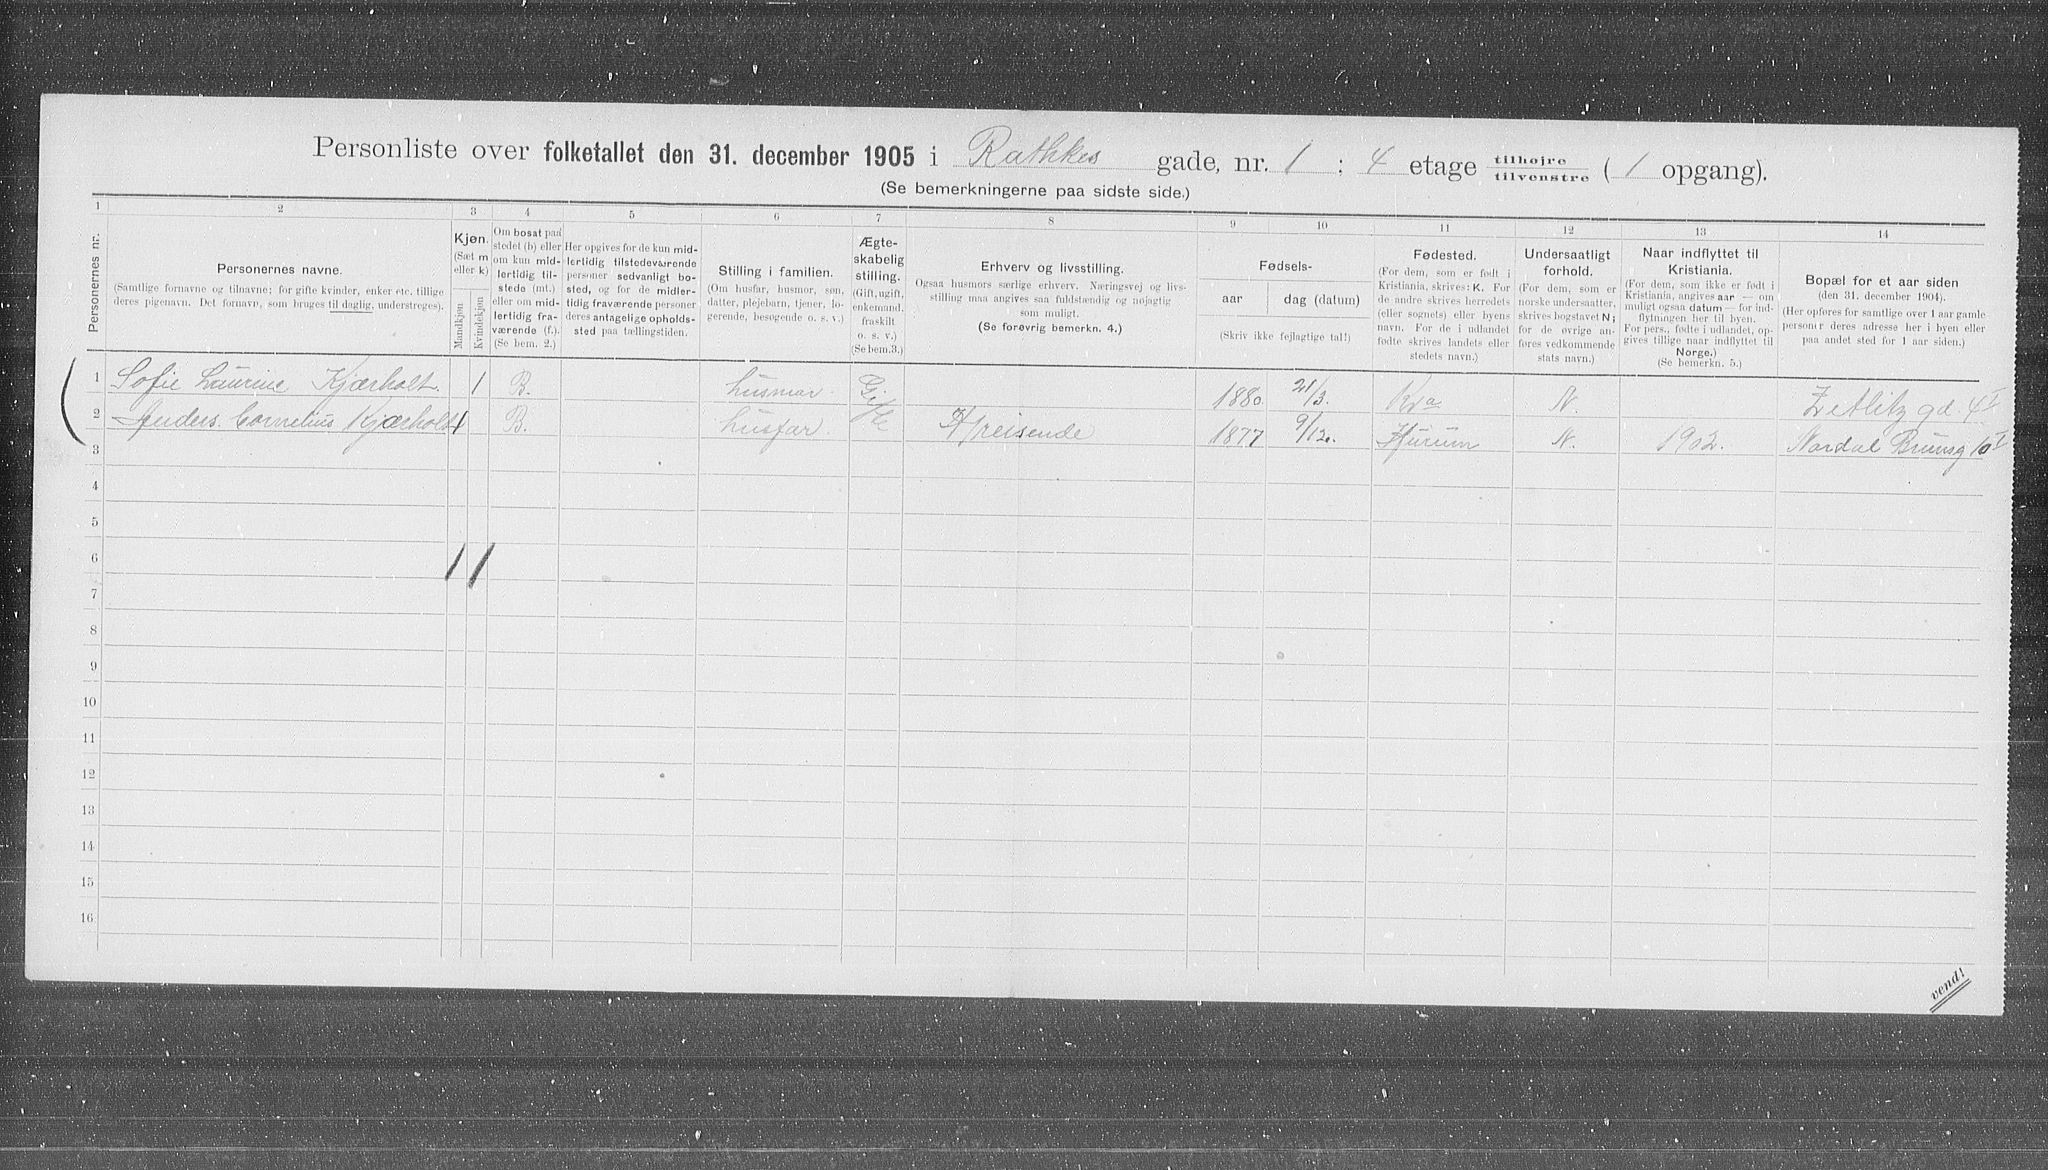 Personliste over folketallet den 31. december 1905 i Rathkes gade, nr. 1 : 4 etage tilhøjre tilvenstre ( 1 opgang).
(Se bemerkningerne paa sidste side.)
1 2 3 4 5 6 7 8 9 10 11 12 13 14
Personernes nr.
Personernes navne.
(Samtlige fornavne og tilnavne; for gifte kvinder, enker etc. tillige
deres pigenavn. Det fornavn, som bruges til daglig, understreges).
Kjøn.
(Sæt m
eller k)
Mandkjøn
Kvindekjøn
Om bosat paa
stedet (b) eller
om kun mid-
lertidig til-
stede (mt.)
eller om mid-
lertidig fra-
værende (f.).
(Se bem. 2.)
Her opgives for de kun mid-
lertidig tilstedeværende
personer sedvanligt bo-
sted, og for de midler-
tidig fraværende personer
deres antagelige opholds-
sted paa tællingstiden.
Stilling i familien.
(Om husfar, husmor, søn,
datter, plejebarn, tjener, lo-
gerende, besøgende o. s. v.)
Ægte-
skabelig
stilling.
(Gift, ugift,
enkemand,
fraskilt
o. s. v.)
(Se bem.3.)
Erhverv og livsstilling.
Ogsaa husmors særlige erhverv. Næringsvej og livs-
stilling maa angives saa fuldstændig og nøjagtig
som muligt.
(Se forøvrig bemerkn. 4.)
Fødsels-
aar dag (datum)
(Skriv ikke fejlagtige tal!)
Fødested.
(For dem, som er født i
Kristiania, skrives: K. For
de andre skrives herredets
(eller sognets) eller byens
navn. For de i udlandet
fødte skrives landets eller
stedets navn.)
Undersaatligt
forhold.
(For dem, som er
norske undersaatter,
skrives bogstavet N;
for de øvrige an-
føres vedkommende
stats navn.)
Naar indflyttet til
Kristiania.
(For dem, som ikke er født i
Kristiania, angives aar — om
muligt ogsaa datum — for ind-
flytningen her til byen.
For pers., fødte i udlandet, op-
gives tillige naar indflyttet til
Norge.)
(Se bemerkn. 5.)
Bopæl for et aar siden
(den 31. december 1904).
(Her opføres for samtlige over 1 aar gamle
personer deres adresse her i byen eller
paa andet sted for 1 aar siden.)
1 Sofie Laurine Kjærholt. 1 B. husmor. Gi 1880. 21/3. Kra N. Zetlitz gd. 4 I
2 Anders. Cornelius Kjærholt 1 B. husfar. H/reisende 1877 9/12. Hurum N. 1902. Nordal Brunsg 10 I
3
4
5
6 1 1
7
8
9
10
11
12
13
14
15
16
vend!